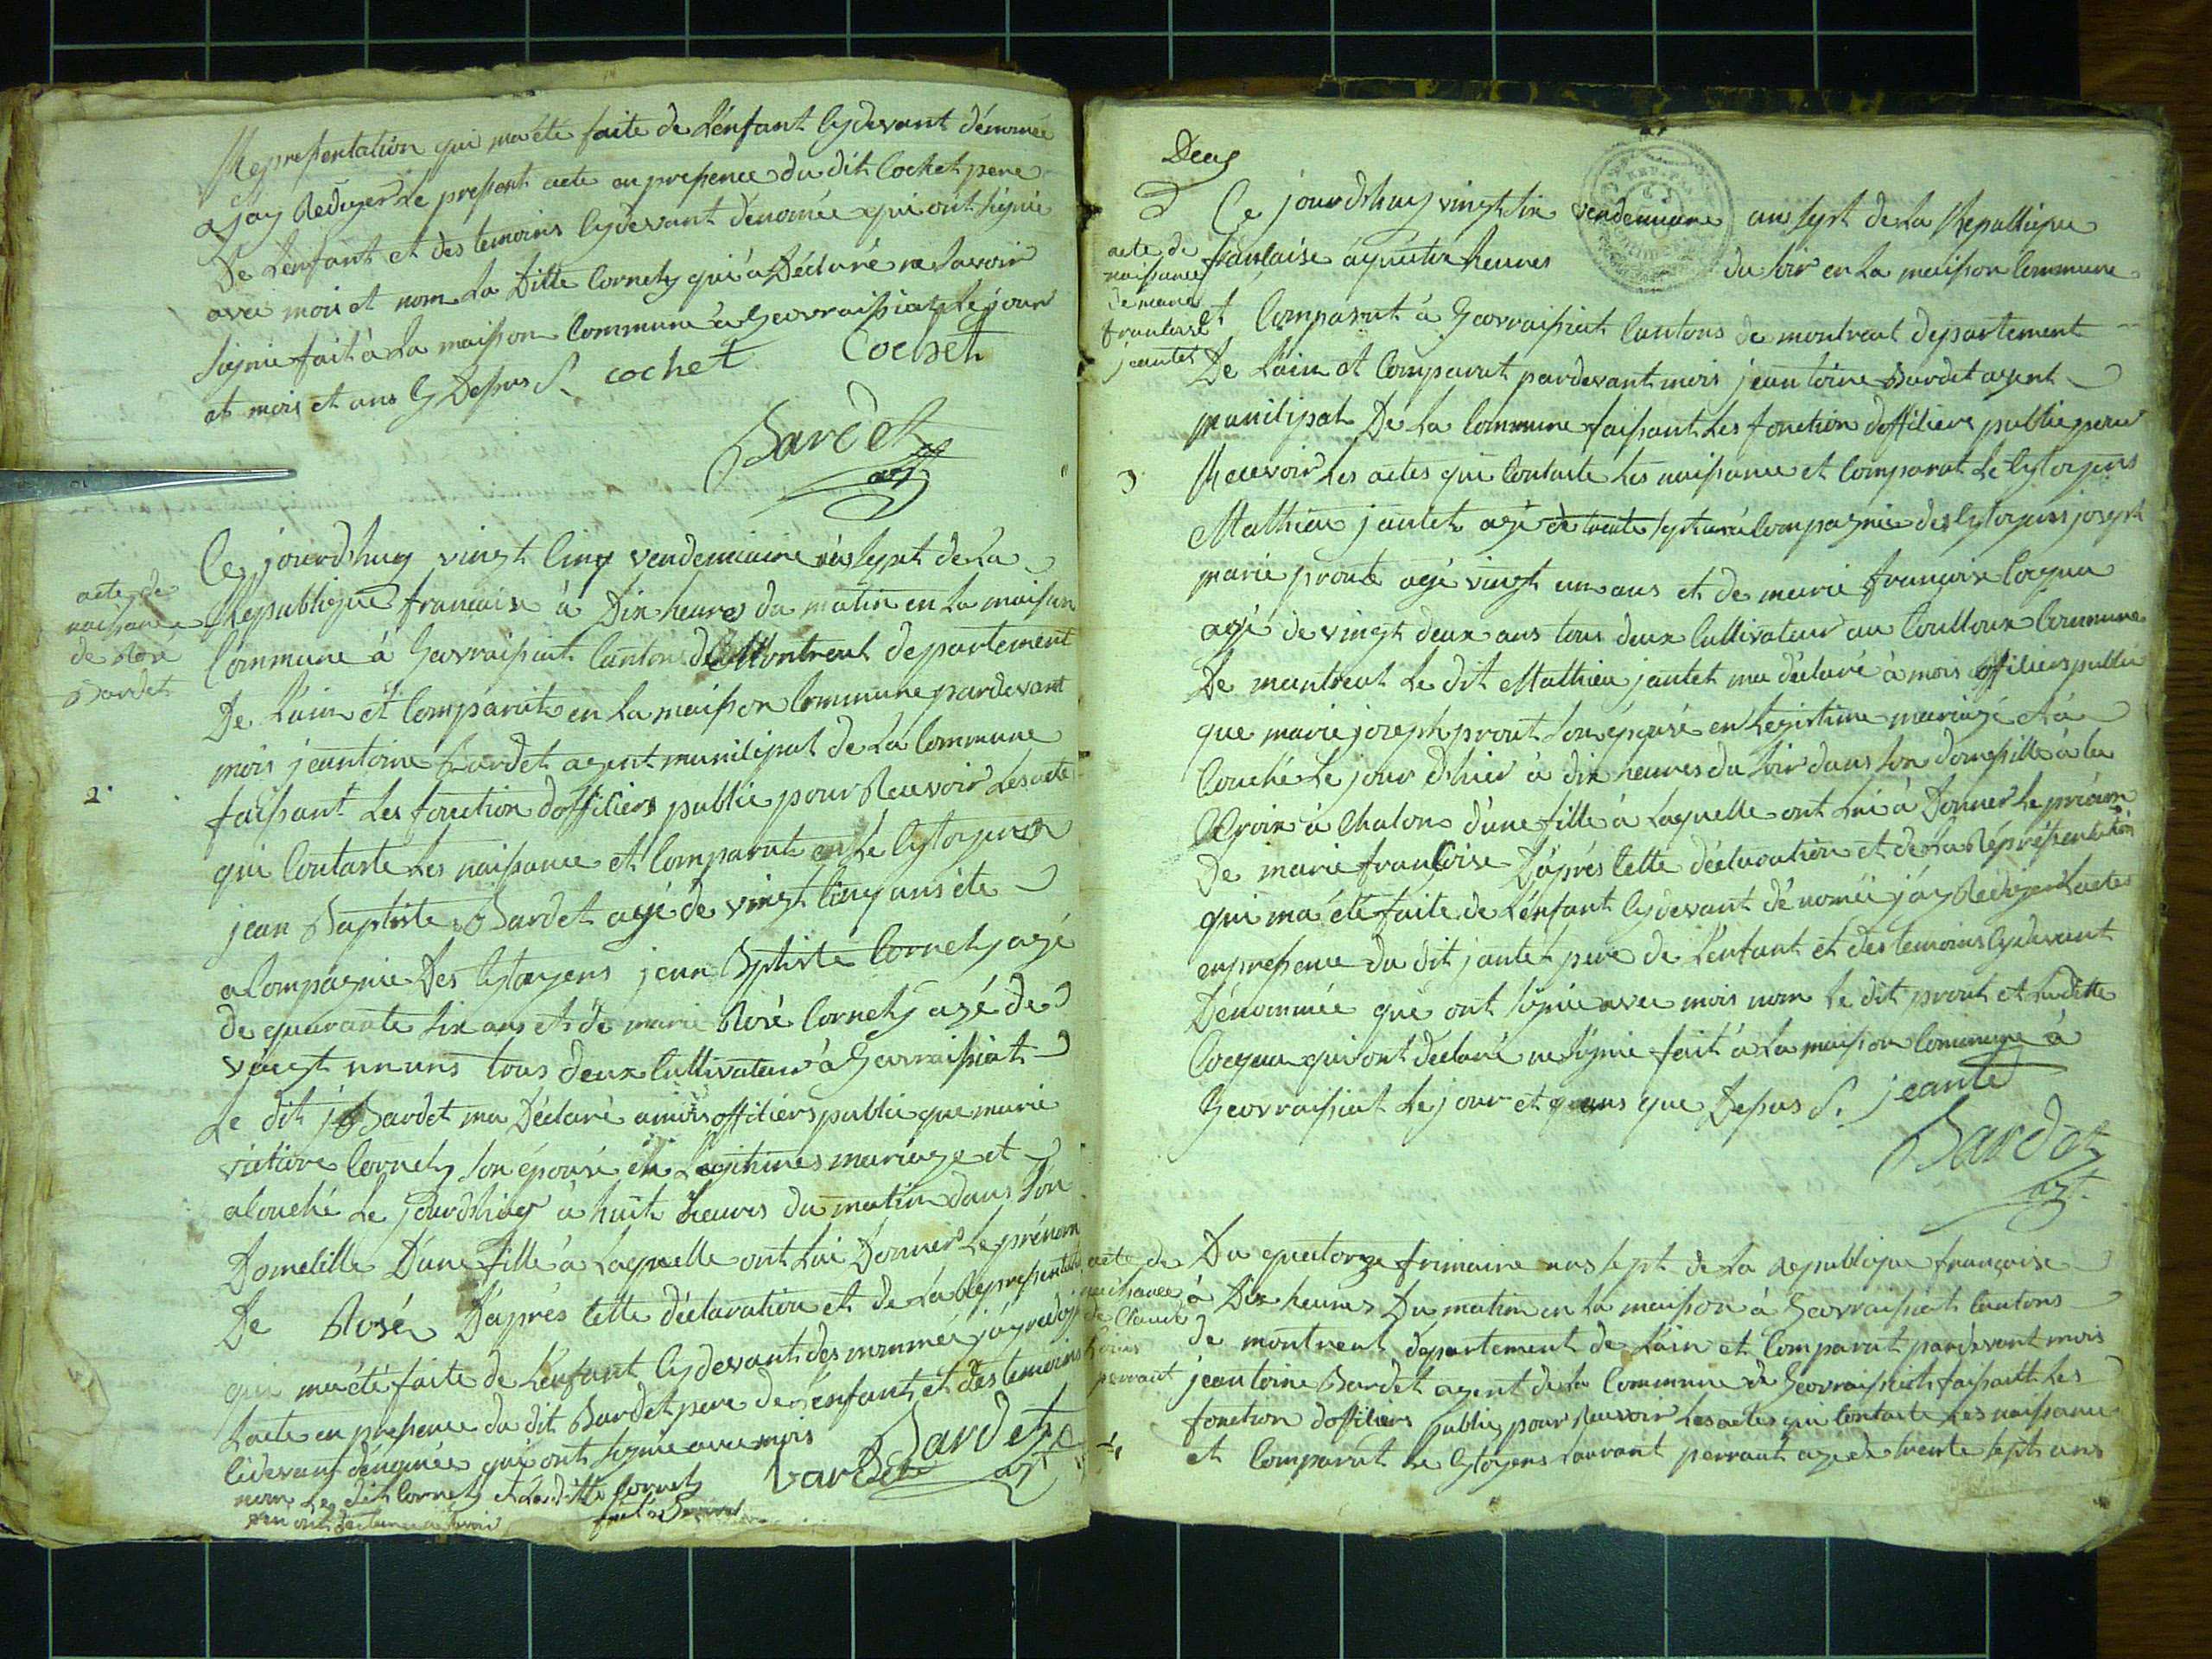 Representation qui ma été faite de L'énfant Cy devant dénomée
jay Rediger Le present acte en presence du dit Cochet pere
De L'enfant et des temoins Cy devant dénomée qui ont signié
avec mois et nom La Ditte Cornety qui a Déclaré ne Savoir
Signié fait à La maison Commune à Geovraissiat Le jour
et mois et ans Cy Depus S. cochet Cochet
Bardet
agt
acte de
naissance
de Rose
Bardet
2.
Ce jourdhuy vingt cinq vendemiaire ans Sept de La
Republique francaise à Dix heures du matin en La maison
Commune à Geovraissiat Canton de Montreal departement
De Láin et Comparut en La maison Commune pardevant
mois jeantoine Bardet agent municipal de La Commune
faissant Les fonction dofficiers public pour Recevoir Les acte
qui Contaste Les naissance et Comparut Le Cytoyens
jean Baptiste Bardet agé de vingt Cinq ans été
aCompagnie Des Cytoyens jean Bptiste Cornety agé
de quarante Six ans et de marie Rosé Cornety agé de
vingt un ans tous deux Cultivateur à Geovraissiat
Le dit j Bardet ma Déclaré à mois officiers public que marie
victoire Cornety Son épouse en Legitimes mariage et
acouché Le jourdhuy à huit heures du matin dans Son
Domicille D'une fille à Laquelle ont Lui Donner Le prénom
De Rosé D'aprés Cette déclaration et de La Representation
qui ma été faite de L'enfant Cy devant des nommée j'ay redij
Lacte en presence du dit Bardet pere de L'énfant et des temoins
Cidevant dénomée qui ont Signie avec mois
nom Le dit Cornety et La ditte Cornety
Bardet Bardet agt
Deux
acte de
naissance
de marie
francoise
jeantet
3
Ce jourdhuy vingt Six vendemiaire ans Sept de La Republique
francaise à quatre heures du Soir en La maison Commune
et Comparut à Geovraissiat Cantons de montreal departement
De Láin et Comparut pardevant mois jeantoine Bardet agent
municipal De La Commune faissant Les fonction dofficiers public pour
Recevoir Les actes qui Contaste Les naissance et Comparut Le Cytoyens
Mathieu jantet agé de trente Sept ans aCompagnie des Cytoyens joseph
marie prout agé vingt un ans et de marie francoise Cocqua
agé de vingt deux ans tous deux Cultivateur au Coulloux Commune
De montreal Le dit Mathieu jantet ma déclaré à mois officiers public
que marie joseph prout Son épouse en Legistime mariage et à
Couché Le jour d'hier à dix heures du Soir dans Son domissille à la
Croix à Chalon d'une fille à Laquelle ont Lui à Donner Le prénom
De marie francoise D'aprés Cette déclaration et de La Répresentation
qui ma été faite de L'énfant Cy devant dénomée j'ay Rediger Lactes
en presence du dit jantet pere de L'énfant et des temoins Cy devant
Dénommée qué ont Signie avec mois nom Le dit prout et Laditte
Cocqua qui ont déclaré ne Signié fait à La maison Commune à
Geovraissiat Le jour et ans que Depus S. jeante
Bardet
agt.
acte de
naissance
de Claude
Louis
perraut
4
Du quatorze frimaire ans Sept de La republique française
à Dix heures Du matin en La maison à Geovraissiat Cantons
de montreal departement de Láin et Comparut pardevant mois
jeantoine Bardet agent de la Commune de Geovraissiat faissant Les
fonction dofficiers public pour Recevoir Les actes qui Contaste Les naissance
et Comparut Le Cytoyens Laurant perraut agé de trente Sept ans